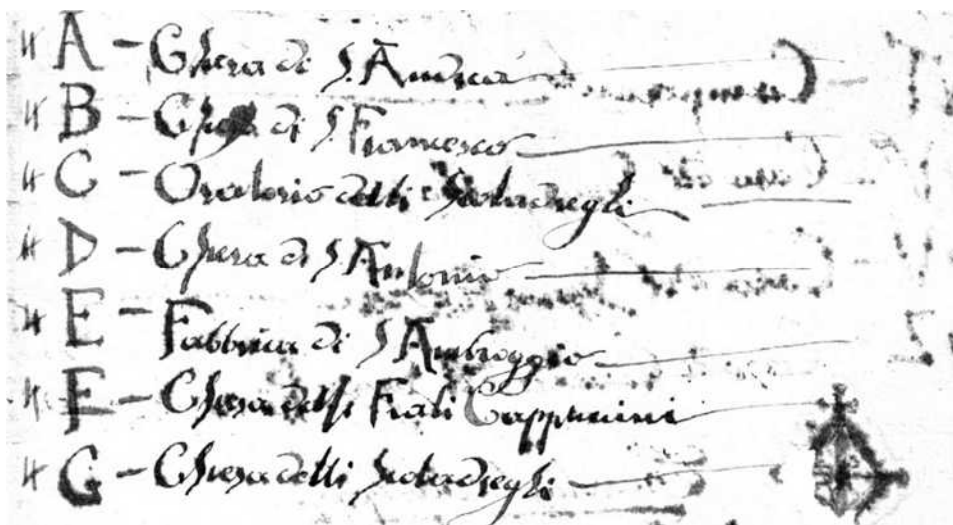 A - Chiesa di S. Andrea
B - Chiesa di S. Francesco
C - Oratorio delli
D - Chiesa di S. Antonio
E - Fabbrica di S Ambroggio
F - Chiesa delli Frati Cappuccini
G - Chiesa delli